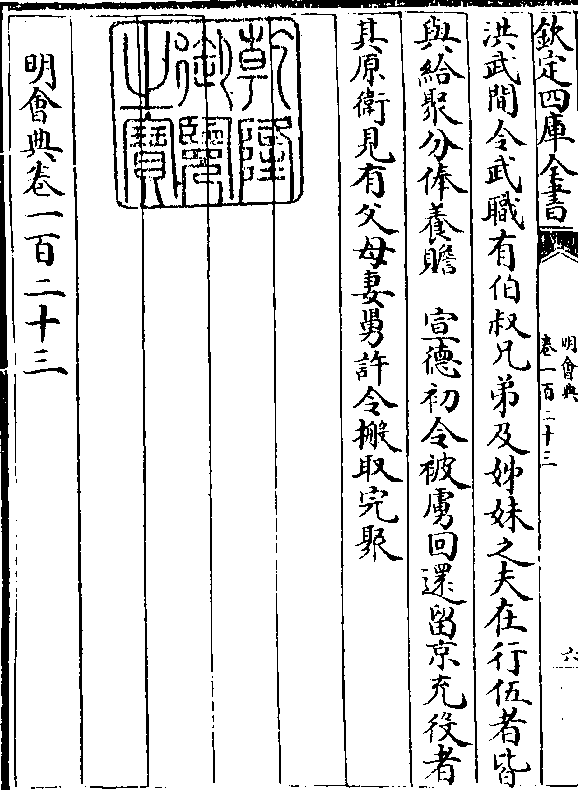 欽定四庫全書
明會典
卷一百二十三
六
洪武間令武職有伯叔兄弟及姊妹之夫在行伍者皆
與給聚分俸養贍　宣德初令被虜回還留京充役者
其原衛見有父母妻男許令搬取完聚
乾隆
御覽
之寶
明會典卷一百二十三